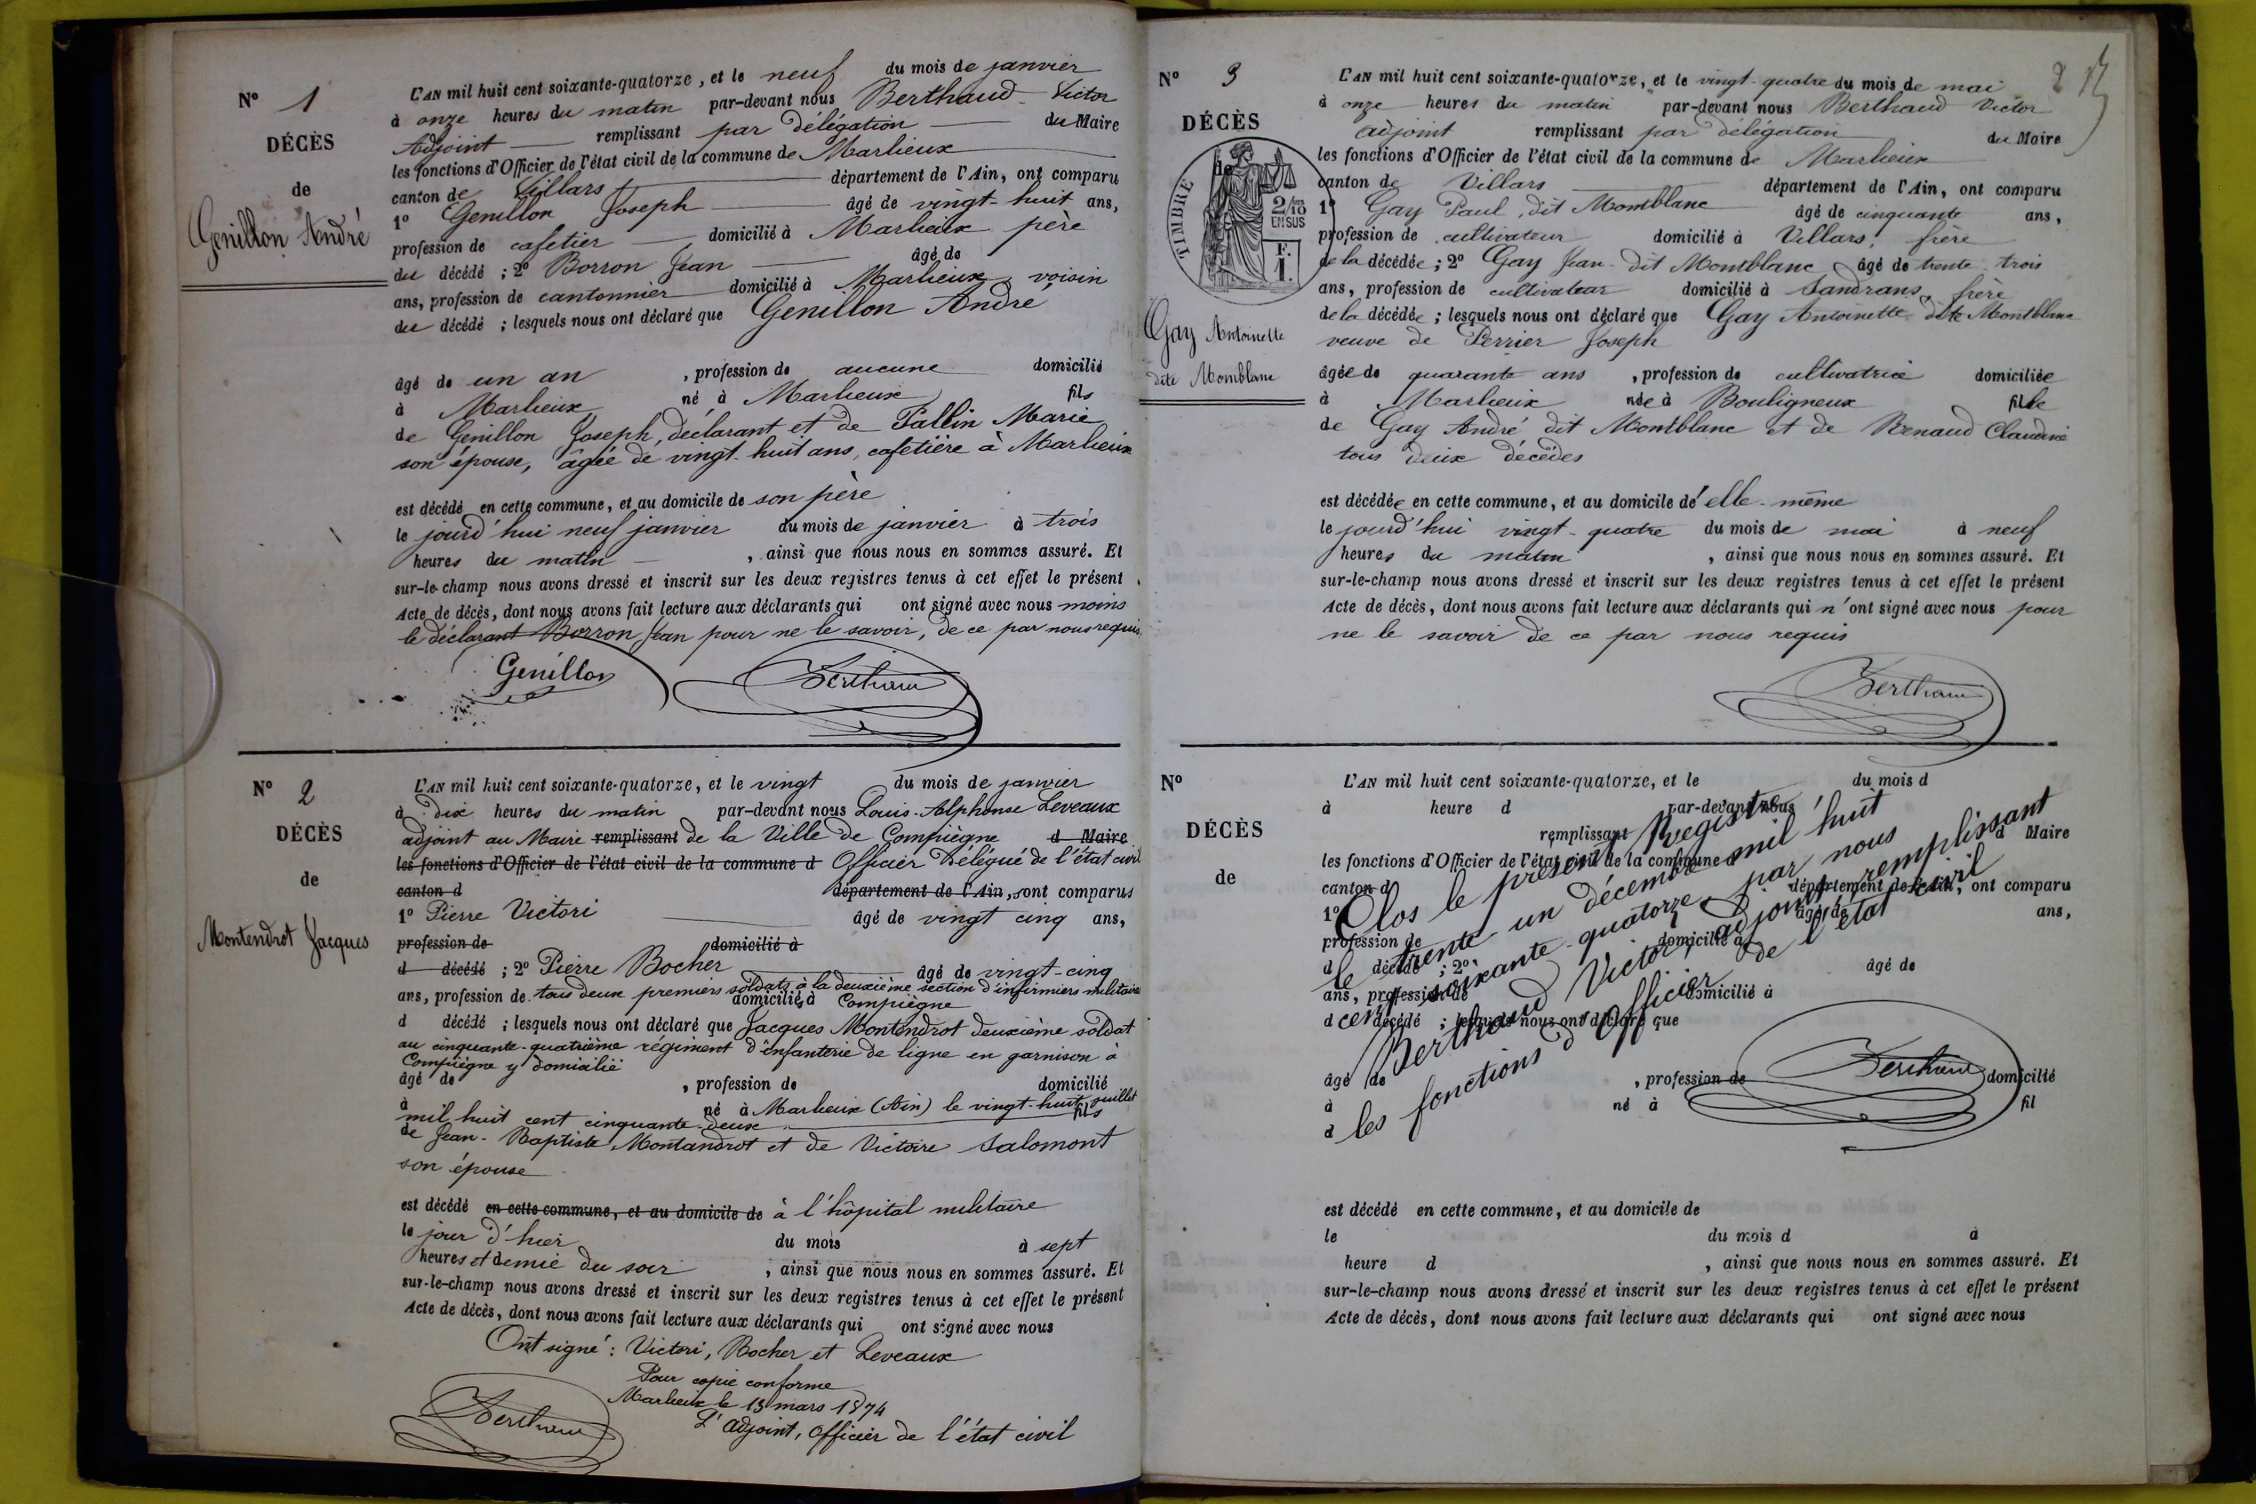 N° 1
DÉCÈS
de
Genillon André
L'AN mil huit cent soixante-quatorze, et le neuf du mois de janvier
à onze heures du matin par-devant nous Berthaud Victor
Adjoint remplissant par délégation du Maire
les fonctions d'Officier de l'état civil de la commune de Marlieux
canton de Villars département de l'Ain, ont comparu
1° Genillon Joseph âgé de vingt-huit ans,
profession de cafetier domicilié à Marlieux père
du décédé ; 2° Borron Jean âgé de
ans, profession de cantonnier domicilié à Marlieux, voisin
du décédé ; lesquels nous ont déclaré que Genillon André
âgé de un an , profession de aucune domicilié
à Marlieux né à Marlieux fils
de Genillon Joseph, déclarant et de Marie
son épouse, âgée de vingt-huit ans, cafetière à Marlieux
est décédé en cette commune, et au domicile de son père
le jourd'hui neuf janvier du mois de janvier à trois
heures du matin , ainsi que nous nous en sommes assuré. Et
sur-le-champ nous avons dressé et inscrit sur les deux registres tenus à cet effet le présent
Acte de décès, dont nous avons fait lecture aux déclarants qui ont signé avec nous moins
le déclarant Borron Jean pour ne le savoir, de ce par nous requis
Genillon Berthaud
N° 2
DÉCÈS
de
Montendrot Jacques
L'AN mil huit cent soixante-quatorze, et le vingt du mois de janvier
à dix heures du matin par-devant nous Louis-Alphonse Leveaux
adjoint au Maire remplissant de la Ville de Compiègne d Maire
les fonctions d'Officier de l'état civil de la commune d Officier Délégué de l'état civil
canton d département de l'Ain, sont comparus
1° Pierre Victori âgé de vingt cinq ans,
profession de domicilié à
d décédé ; 2° Pierre Bocher âgé de vingt-cinq
ans, profession de tous deux premiers soldats à la deuxième section d'infirmiers militaires
domiciliés à Compiègne
d décédé ; lesquels nous ont déclaré que Jacques Montendrot deuxième soldat
au cinquante-quatrième régiment d'infanterie de ligne en garnison à
Compiègne y domicilié
âgé de , profession de domicilié
à né à Marlieux (Ain) le vingt-huit juillet
mil huit cent cinquante-deux fils
de Jean-Baptiste Montandrot et de Victoire Salomont
son épouse
est décédé en cette commune, et au domicile de à l'hôpital militaire
le jour d'hier du mois à sept
heures et demie du soir , ainsi que nous nous en sommes assuré. Et
sur-le-champ nous avons dressé et inscrit sur les deux registres tenus à cet effet le présent
Acte de décès, dont nous avons fait lecture aux déclarants qui ont signé avec nous
Ont signé : Victori, Bocher et Leveaux
Pour copie conforme
Marlieux le 13 mars 1874
L'adjoint, Officier de l'état civil
Berthaud
N° 3
DÉCÈS
de
TIMBRE
2/10
EN SUS
F.
1.
Gay Antoinette
dite Momblanc
2
L'AN mil huit cent soixante-quatorze, et le vingt-quatre du mois de mai
à onze heures du matin par-devant nous Berthaud Victor
adjoint remplissant par délégation du Maire
les fonctions d'Officier de l'état civil de la commune de Marlieux
canton de Villars département de l'Ain, ont comparu
1° Gay Paul, dit Momblanc âgé de cinquante ans,
profession de cultivateur domicilié à Villars, frère
de la décédée ; 2° Gay Jean dit Montblanc âgé de trente-trois
ans, profession de cultivateur domicilié à Sandrans, frère
de la décédée ; lesquels nous ont déclaré que Gay Antoinette dite Montblanc
veuve de Perrier Joseph
âgée de quarante ans , profession de cultivatrice domiciliée
à Marlieux née à Bouligneux fille
de Gay André dit Montblanc et de Renaud Claudine
tous deux décédés
est décédée en cette commune, et au domicile d'elle-même
le jourd'hui vingt-quatre du mois de mai à neuf
heures du matin , ainsi que nous nous en sommes assuré. Et
sur-le-champ nous avons dressé et inscrit sur les deux registres tenus à cet effet le présent
Acte de décès, dont nous avons fait lecture aux déclarants qui n'ont signé avec nous pour
ne le savoir de ce par nous requis
Berthaud
N°
DÉCÈS
de
L'AN mil huit cent soixante-quatorze, et le du mois d
à heure d par-devant nous
remplissant d Maire
les fonctions d'Officier de l'état civil de la commune d
canton d département de l'Ain, ont comparu
1° âgé de ans,
profession de domicilié à
d décédé ; 2° âgé de
ans, profession de domicilié à
d décédé ; lesquels nous ont déclaré que
âgé de , profession de domicilié
à né à fil
d
Clos le présent Registre
le trente-un décembre mil huit
cent soixante-quatorze, par nous
Berthaud Victor, adjoint remplissant
les fonctions d'Officier de l'état civil
Berthaud
est décédé en cette commune, et au domicile de
le du mois d à
heure d , ainsi que nous nous en sommes assuré. Et
sur-le-champ nous avons dressé et inscrit sur les deux registres tenus à cet effet le présent
Acte de décès, dont nous avons fait lecture aux déclarants qui ont signé avec nous